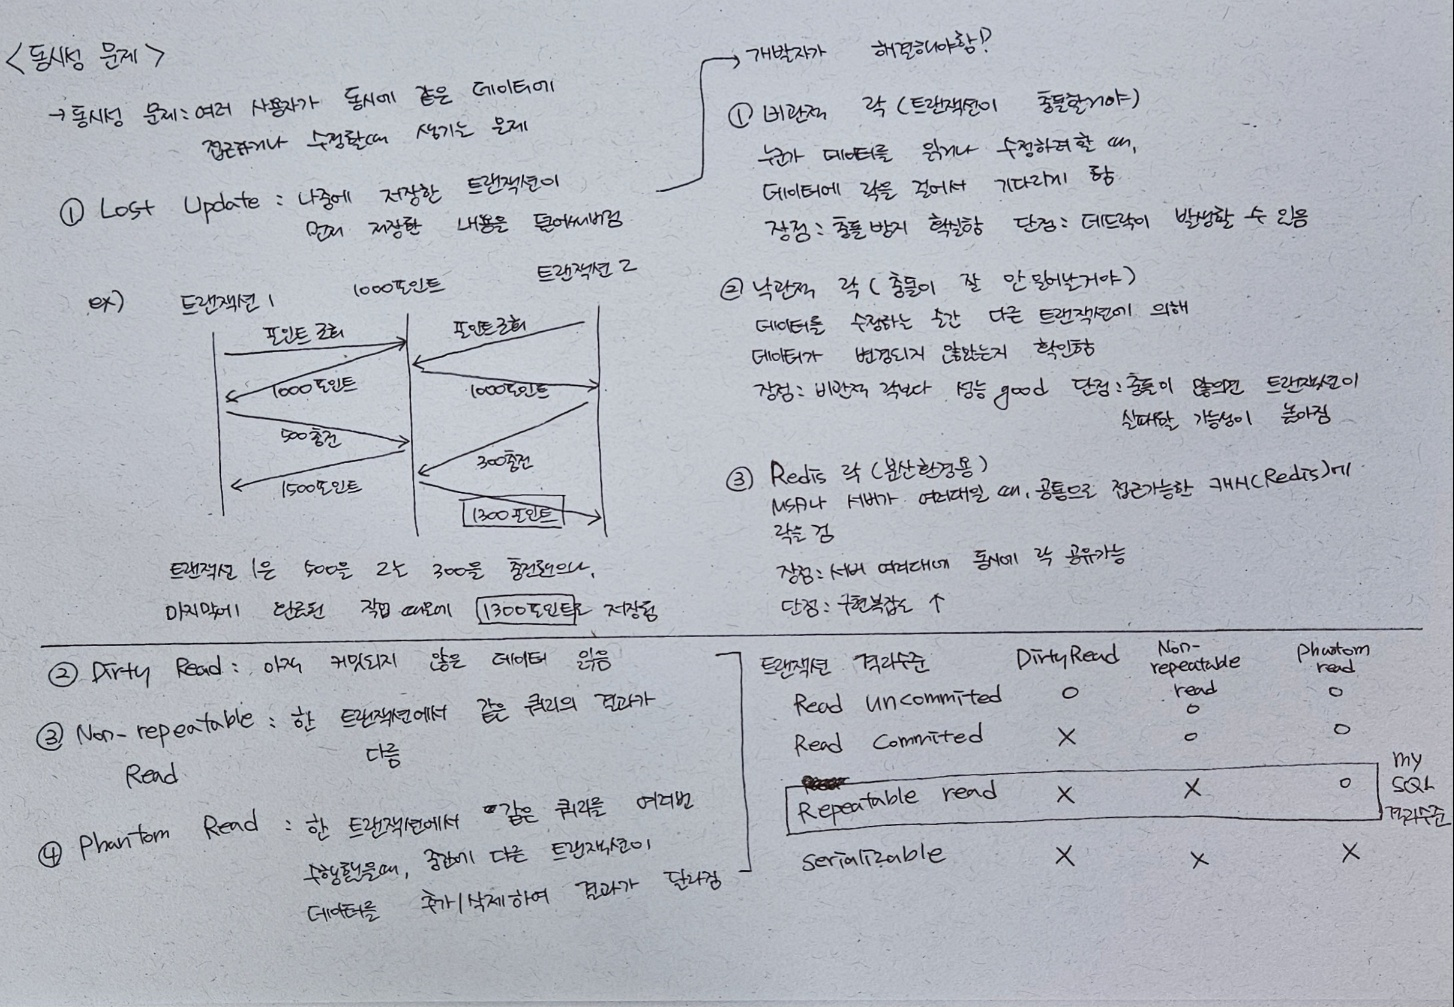 <동시성 문제>
→ 동시성 문제: 여러 사용자가 동시에 같은 데이터에
접근하거나 수정할때 생기는 문제
① Lost Update : 나중에 저장한 트랜잭션이
먼저 저장한 내용을 덮어써버림
ex) 트랜잭션 1 1000포인트 트랜잭션 2
포인트 조회 포인트 조회
1000포인트 1000포인트
500충전
300충전
1500포인트
1300포인트
트랜잭션 1은 500을 2는 300을 충전했으나,
마지막에 완료된 작업 때문에 1300포인트로 저장됨
→ 개발자가 해결해야함!?
① 비관적 락 (트랜잭션이 충돌할거야)
누군가 데이터를 읽거나 수정하려할 때,
데이터에 락을 걸어서 기다리게 함
장점: 충돌 방지 확실함 단점: 데드락이 발생할 수 있음
② 낙관적 락 (충돌이 잘 안 일어날거야)
데이터를 수정하는 순간 다른 트랜잭션에 의해
데이터가 변경되지 않았는지 확인함
장점: 비관적 락보다 성능 good 단점: 충돌이 많으면 트랜잭션이
실패할 가능성이 높아짐
③ Redis 락 (분산환경용)
MSA나 서버가 여러대일 때, 공통으로 접근가능한 캐시(Redis)에
락을 검
장점: 서버 여러대에 동시에 락 공유가능
단점: 구현복잡도 ↑
② Dirty Read : 아직 커밋되지 않은 데이터 읽음
③ Non-repeatable : 한 트랜잭션에서 같은 쿼리의 결과가
Read 다름
④ Phantom Read : 한 트랜잭션에서 같은 쿼리를 여러번
수행했을때, 중간에 다른 트랜잭션이
데이터를 추가/삭제하여 결과가 달라짐
트랜잭션 격리수준 Dirty Read Non-repeatable read Phantom read
Read uncommited O O O
Read commited X O O
Repeatable read X X O
my
SQL
격리수준
serializable X X X